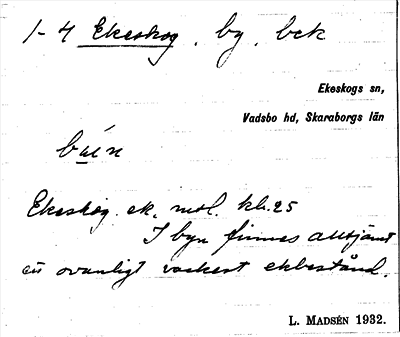 1-4 Ekeskog, by, bek
Ekeskogs sn,
Vadsbo hd, Skaraborgs län
Ekeskog. ek. mol. kb. 25
I byn finnes alltjämt
ett ovanligt vackert ekbestånd.
L. MADSÉN 1932.